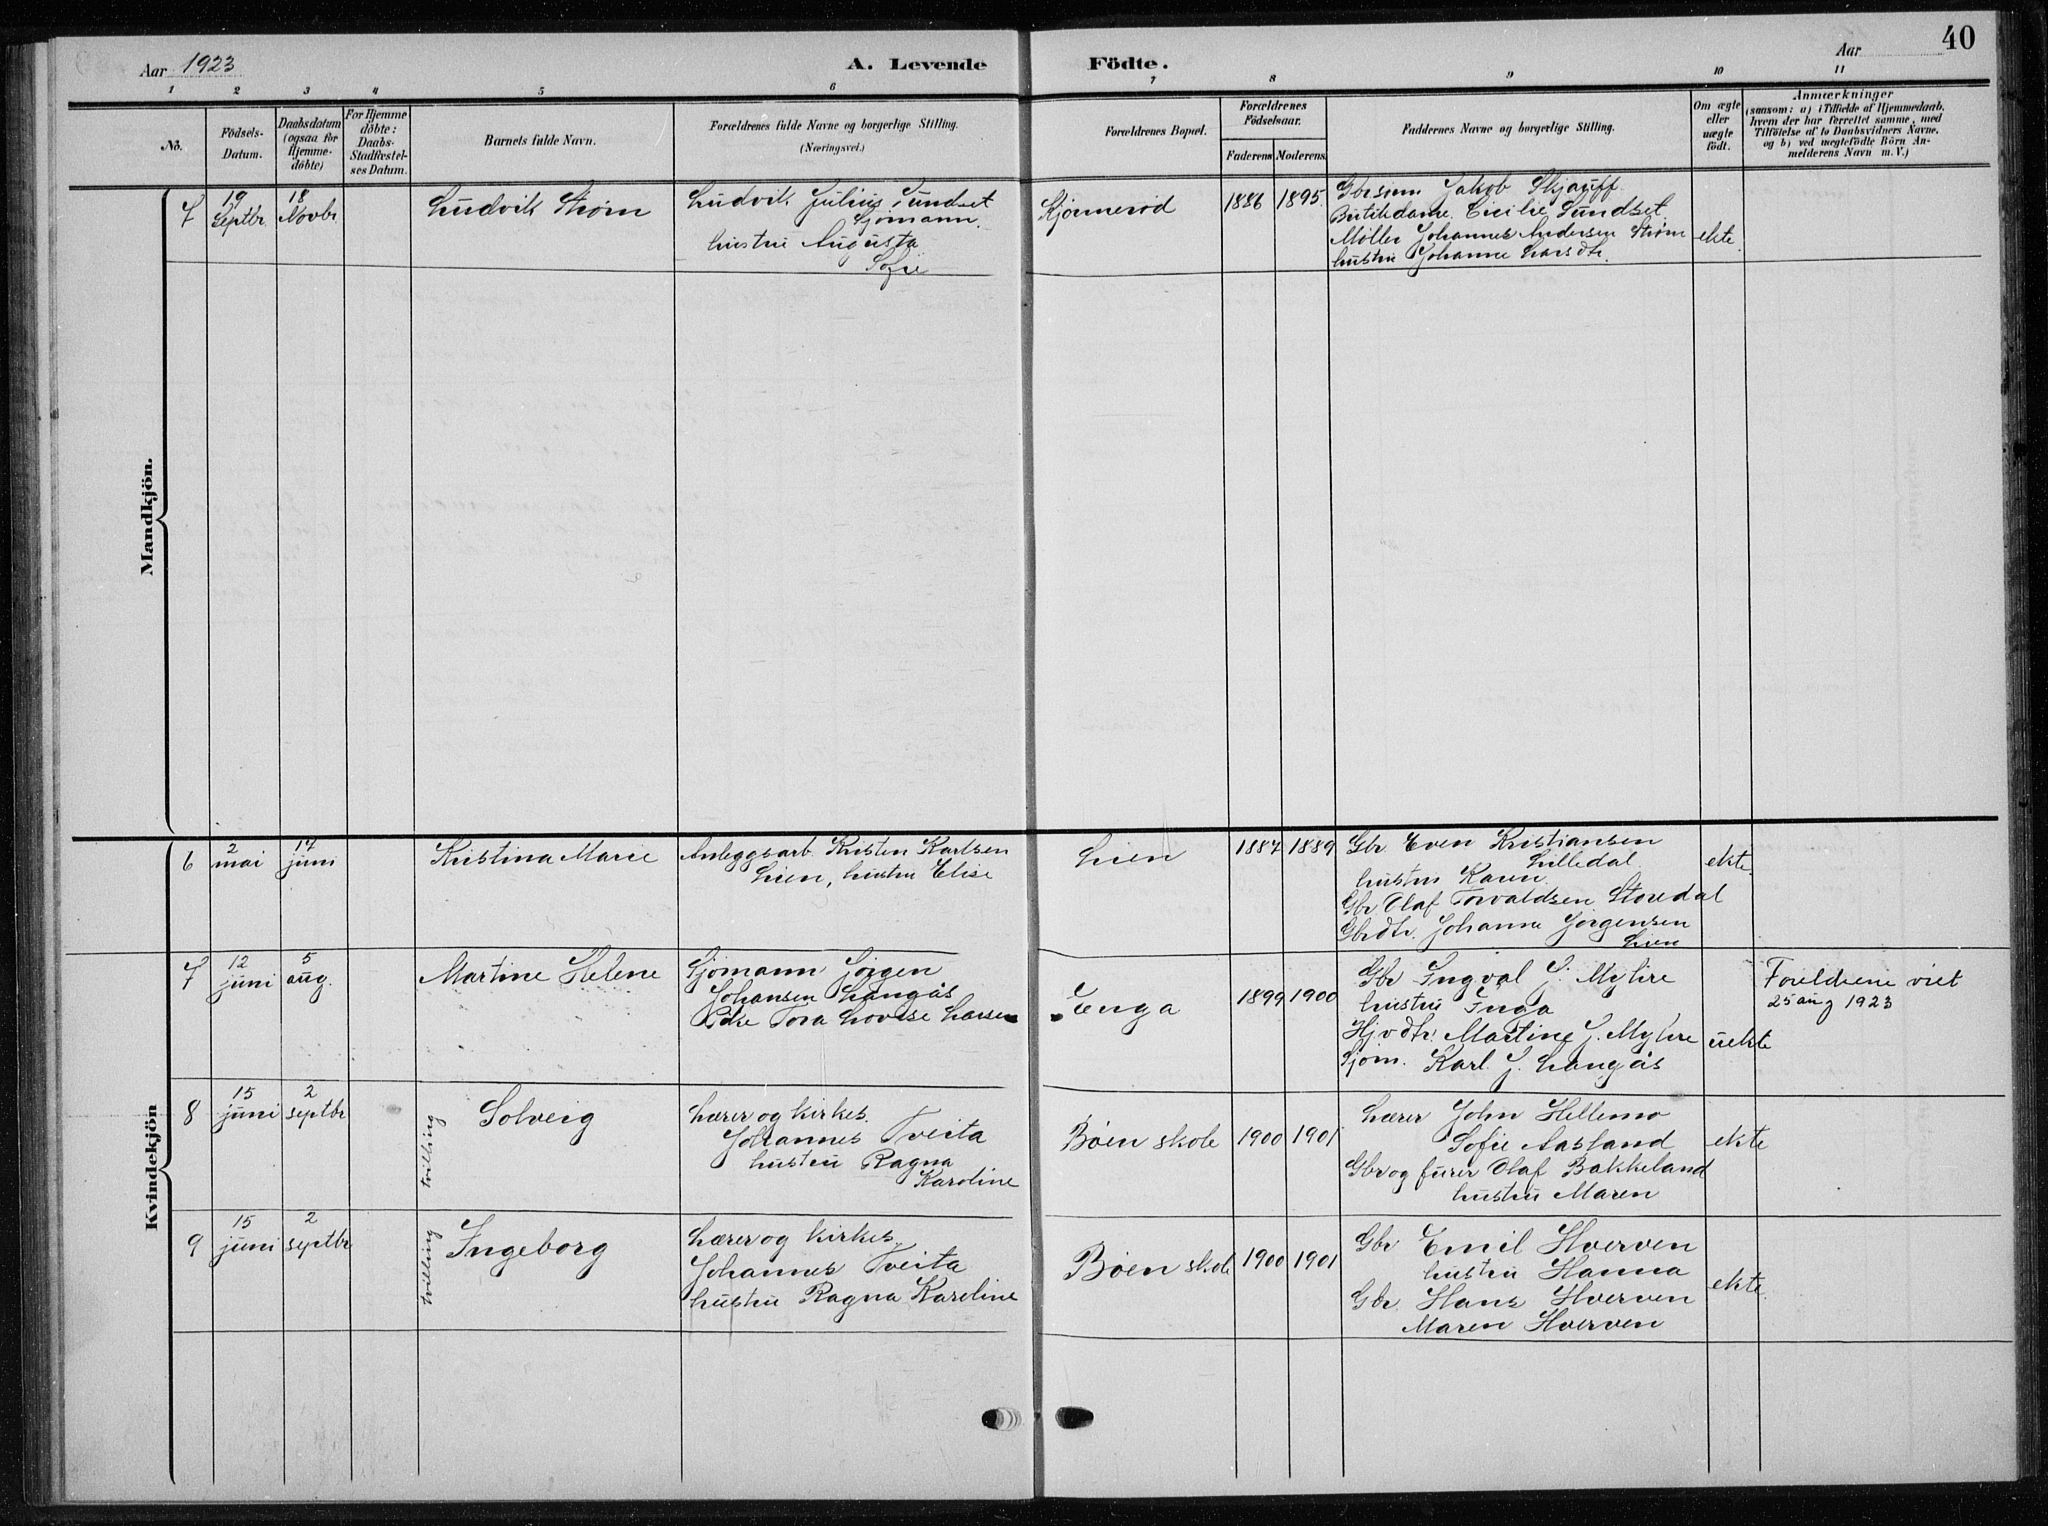 Aar 1923
A. Levende
Födte.
Aar
40
1
2
3
4
5
6
7
8
9
10
11
No.
Födsels-
Datum.
Daabsdatum
(ogsaa for
Hjemme-
döbte)
For Hjemme
döbte:
Daabs-
Stadfæstel-
ses Datum.
Barnets fulde Navn.
Forældrenes fulde Navne og borgerlige Stilling.
(Næringsvei.)
Forældrenes Bopæl.
Forældrenes
Födselsaar.
Faderens
Moderens.
Faddernes Navne og borgerlige Stilling.
Om ægte
eller
uægte
födt.
Anmærkninger
(saasom: a) i Tilfælde af Hjemmedaab,
hvem der har forrettet samme, med
Tilföielse af to Daabsvidners Navne.
og b) ved uægtefödte Börn An-
melderens Navn m.V.)
Mandkjön.
7
19
Septbr.
18
Novbr
Ludvik Strøm
Ludvik Julius Sundset
Sjømann.
hustru Augusta
Sofie
Kjønnerød
1886
1895.
Gbrsønn Jakob Skjauff.
Butikdame Cicilie Sundset.
Møller Johannes Andersen Strøm
hustru Johanne Larsdtr.
ekte.
Kvindekjön
6
2
mai
17
juni
Kristina Marie
Anleggsarb. Kristen Karlsen
Lien, hustru Elise
Lien
1887
1889
Gbr Even Kristiansen
Lilledal.
hustru Karen.
Gbr Olaf Torvaldsen Storedal
Gbrdtr. Johanna Jørgensen
Lien
ekte.
7
12
juni
5
aug.
Martine Helene
Sjømann Jørgen
Johansen Langås
Pike Tora Lovise Larsen
Enga
1899
1900
Gbr Ingval J. Myhre
hustru Inga
Hjvdtr. Martine J. Myhre
Sjøm. Karl J. Langås
uekte
Foreldrene viet
25 aug 1923
8
15
juni
2
septbr
tvilling
Solveig
Lærer og kirkes.
Johannes Tveita
hustru Ragna
Karoline
Bøen skole
1900
1901
Lærer John Hellemo
Sofie Aasland
Gbr og furer Olaf Bakkeland
hustru Maren
ekte
9
15
juni
2
septbr
tvilling
Ingeborg
Lærer og kirkes.
Johannes Tveita
hustru Ragna Karoline
Bøen skole
1900
1901
Gbr Emil Hverven
hustru Hanna
Gbr. Hans Hverven
Maren Hverven
ekte.